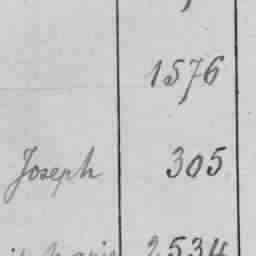 1576
Joseph 305
2534